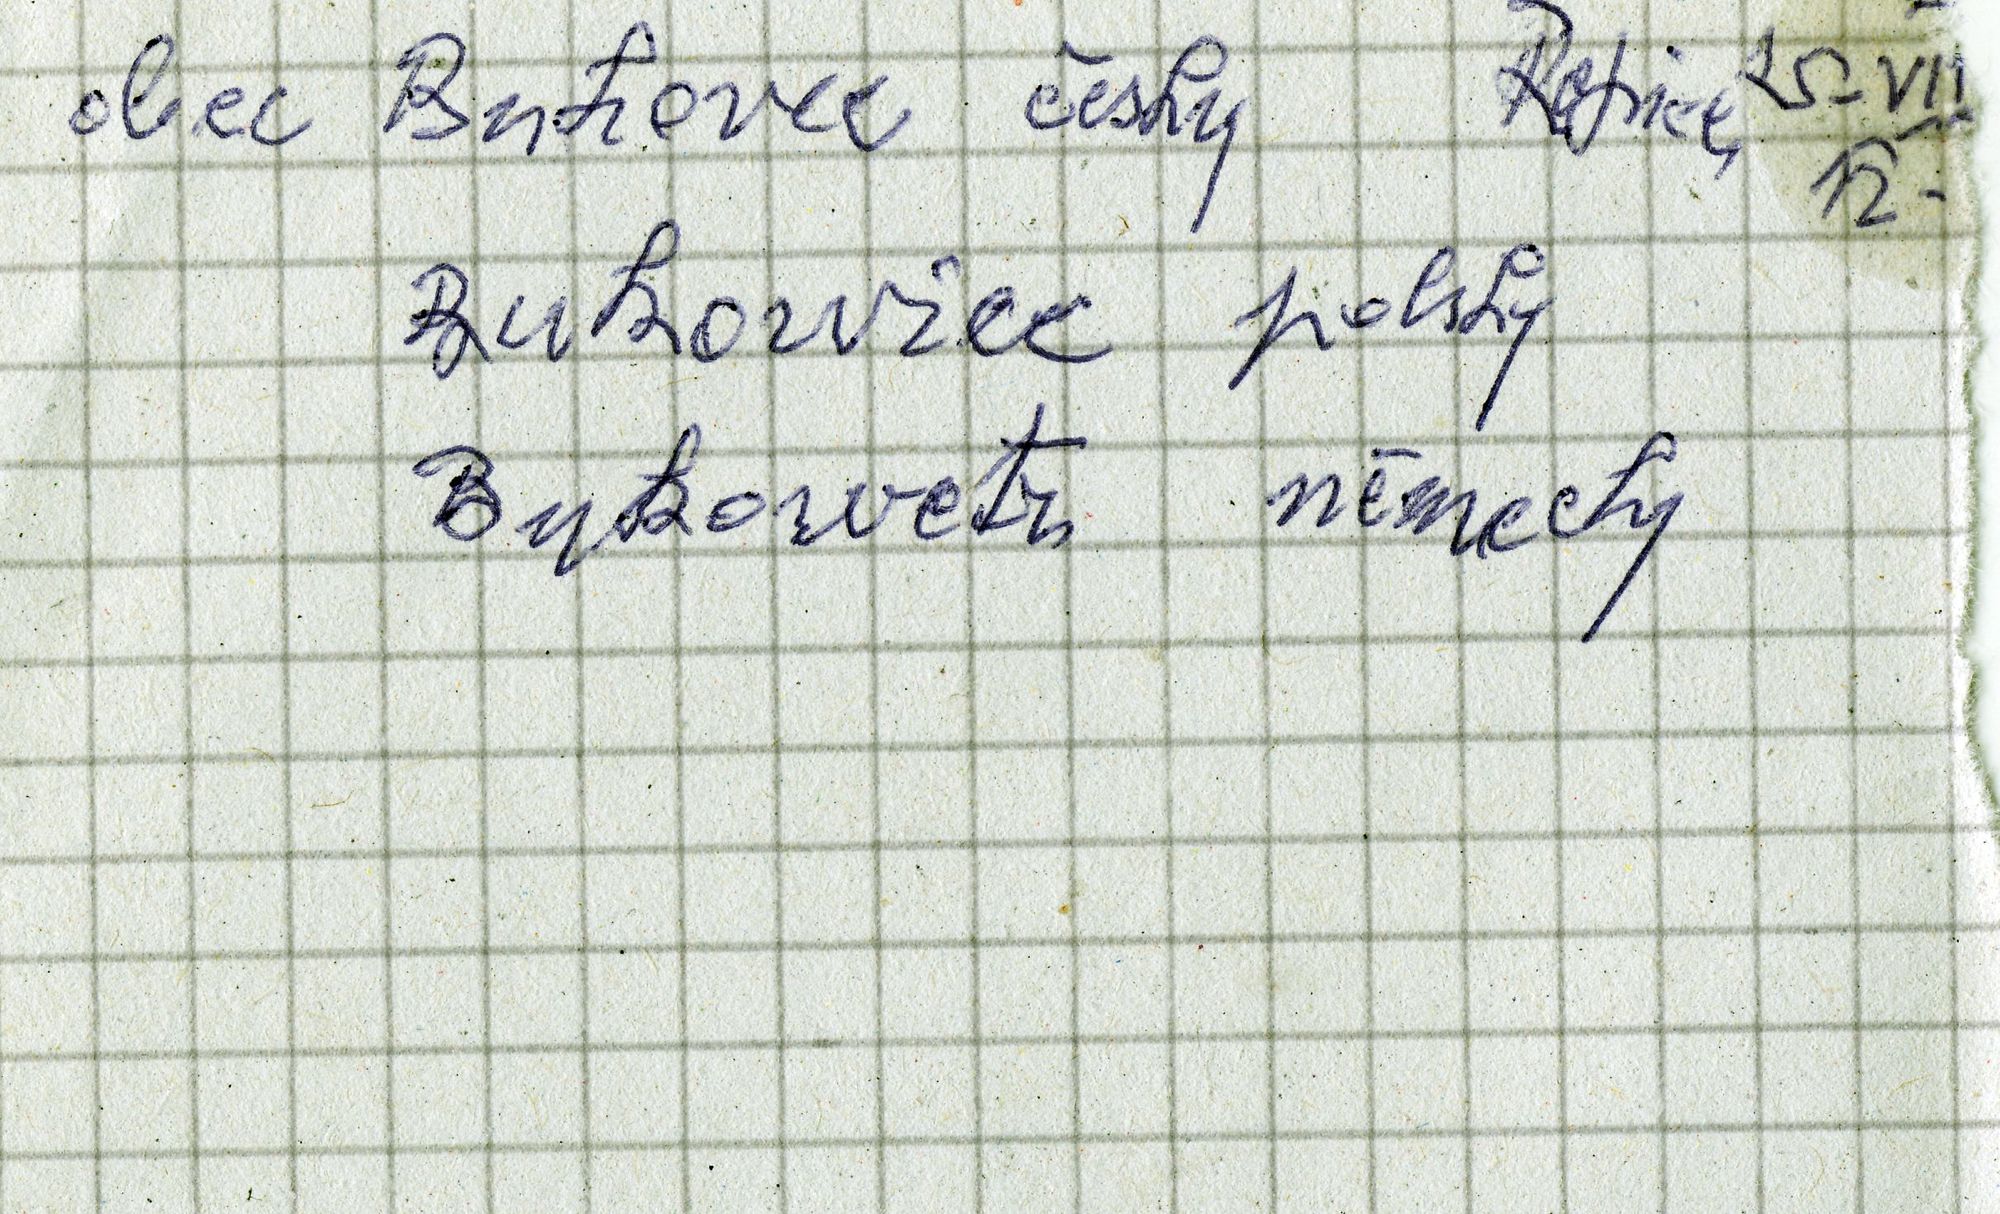 obec Bukovec česky Řepice 25-VII
12-
Bukowiec polsky
Bykowetz německy